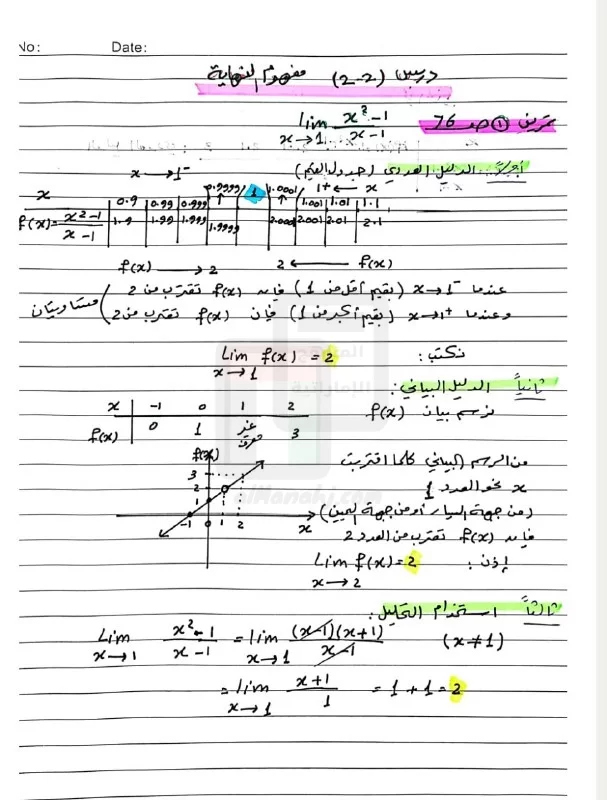 No: Date:
درس (2-2) مفهوم النهاية
تمرين ① صـ 76 lim x→1 x²-1 / x-1
أولاً: الدليل العددي (جدول القيم)
x→1⁻ 1⁺←x
x 0.9 0.99 0.999 0.9999 1 1.0001 1.001 1.01 1.1
f(x)=x²-1 / x-1 1.9 1.99 1.999 1.9999 2.0001 2.001 2.01 2.1
f(x)→2 2←f(x)
عندما x→1⁻ (بقيم أقل من 1) فإنه f(x) تقترب من 2
وعندما x→1⁺ (بقيم أكبر من 1) فإن f(x) تقترب من 2 متساويتان
نكتب: Lim x→1 f(x) = 2
ثانياً الدليل البياني:
نرسم بيان f(x)
x -1 0 1 2
f(x) 0 1 غير معرف 3
f(x) 3 2 1 -1 0 1 2 x
من الرسم البياني كلما اقتربت
x نحو العدد 1
(من جهة اليسار أو من جهة اليمين)
فإنه f(x) تقترب من العدد 2
إذن: Lim x→2 f(x) = 2
ثالثاً استخدام التحليل:
Lim x→1 x²-1 / x-1 = lim x→1 (x-1)(x+1) / x-1 (x≠1)
= lim x→1 x+1 / 1 = 1+1=2
almanahj.com